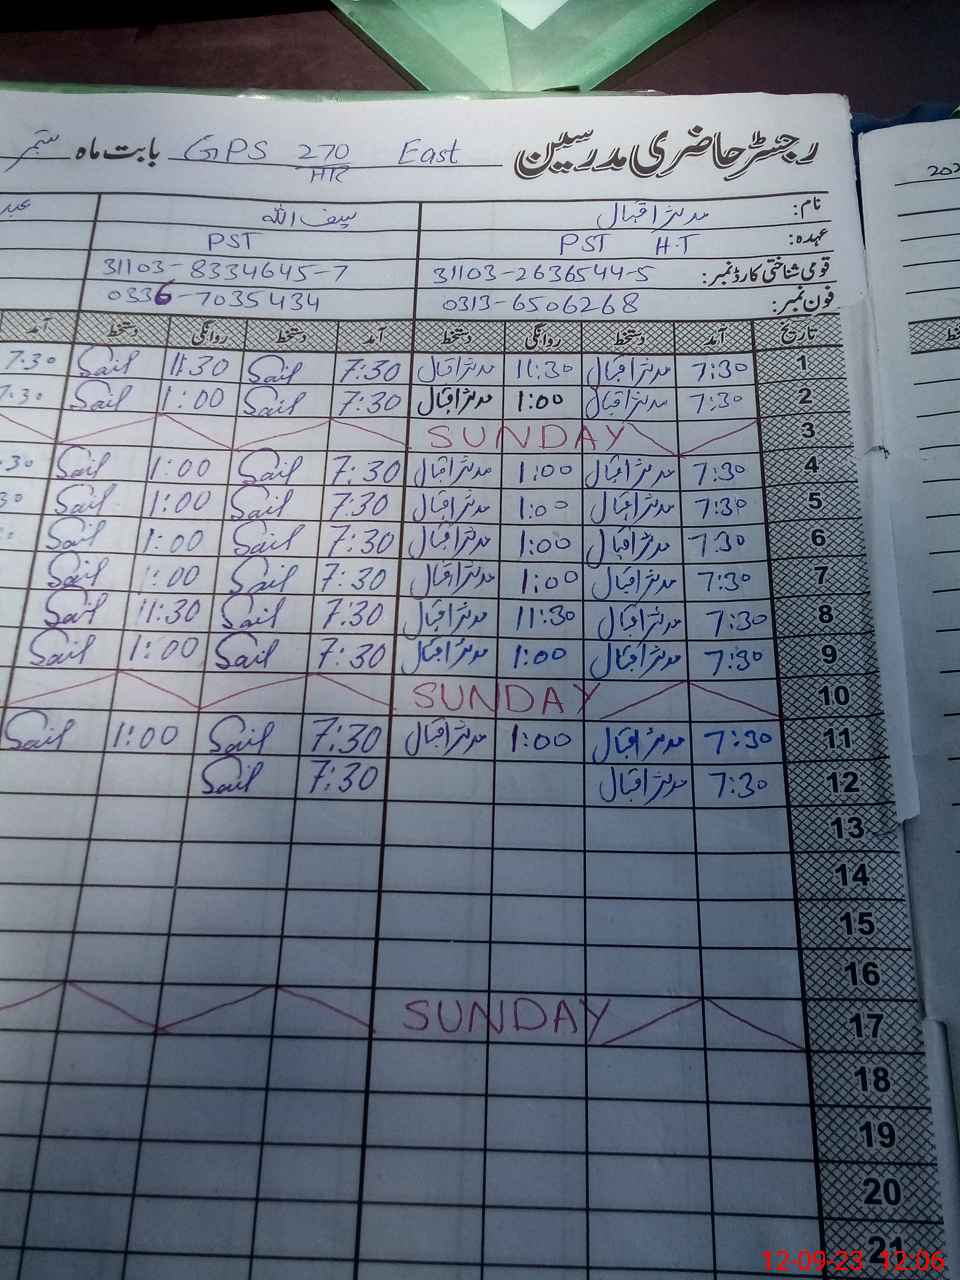 رجسٹر حاضری مدرسین GPS 270/HR East بابت ماہ ستمبر
نام: مدثر اقبال سیف اللہ
عہدہ: PST H.T PST
قومی شناختی کارڈ نمبر: 31103-2636544-5 31103-8334645-7
فون نمبر: 0313-6506268 0336-7035434
تاریخ آمد دستخط روانگی دستخط آمد دستخط روانگی دستخط آمد
1 7:30 مدثر اقبال 11:30 مدثر اقبال 7:30 Saif 11:30 Saif 7:30
2 7:30 مدثر اقبال 1:00 مدثر اقبال 7:30 Saif 1:00 Saif 7:30
3 SUNDAY
4 7:30 مدثر اقبال 1:00 مدثر اقبال 7:30 Saif 1:00 Saif :30
5 7:30 مدثر اقبال 1:00 مدثر اقبال 7:30 Saif 1:00 Saif 30
6 7:30 مدثر اقبال 1:00 مدثر اقبال 7:30 Saif 1:00 Saif
7 7:30 مدثر اقبال 1:00 مدثر اقبال 7:30 Saif 1:00 Saif
8 7:30 مدثر اقبال 11:30 مدثر اقبال 7:30 Saif 11:30 Saif
9 7:30 مدثر اقبال 1:00 مدثر اقبال 7:30 Saif 1:00 Saif
10 SUNDAY
11 7:30 مدثر اقبال 1:00 مدثر اقبال 7:30 Saif 1:00 Saif
12 7:30 مدثر اقبال 7:30 Saif
13
14
15
16
17 SUNDAY
18
19
20
21
12-09-23 12:06